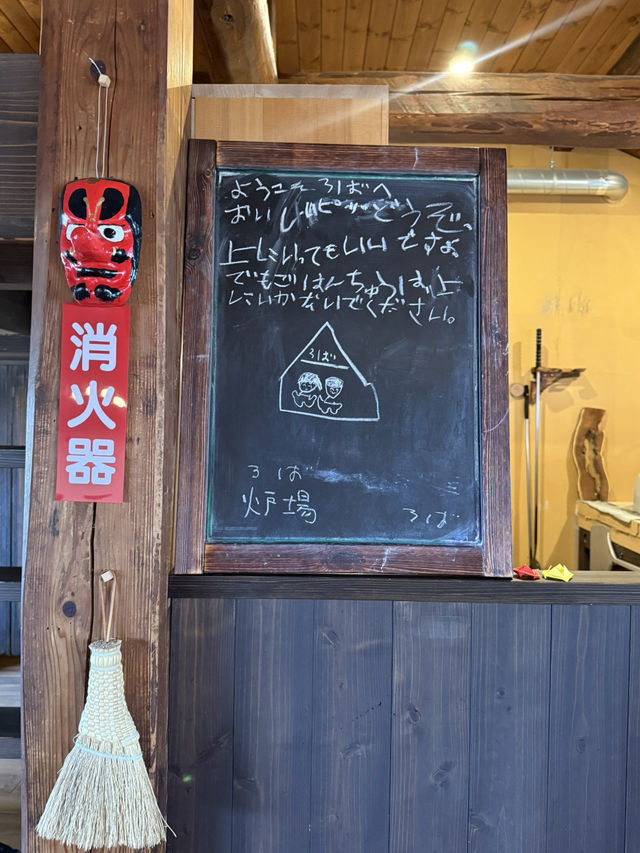 消火器
ようこそ ろばへ
おいしいピッどうぞ、
上にいってもいいですよ。
でもごはんちゅうは、上
にいかないでください。
ろば
ろば
炉場
ろば